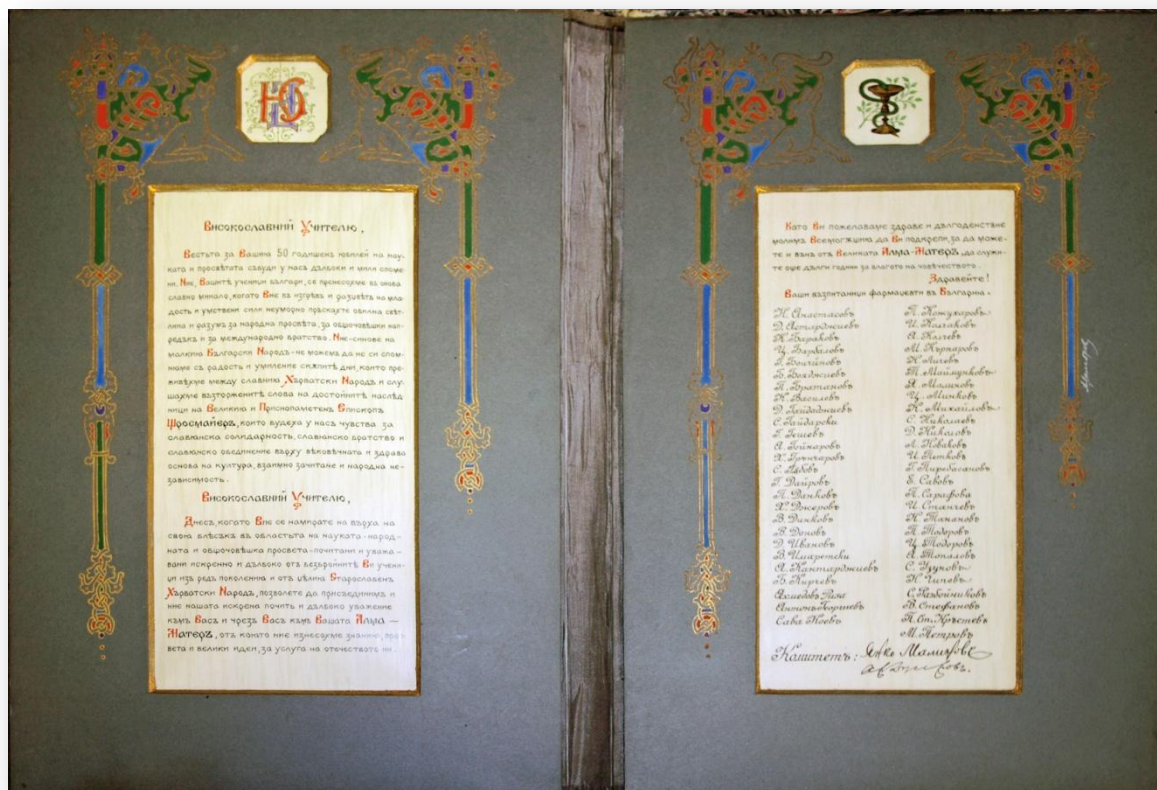 Високославний Учителю,
Вестьта за Вашия 50 годишенъ юбилей на нау-
ката и просвѣтата събуди у насъ дълбоки и мили споме
ни. Ние, Вашитѣ ученици българи, се пренесохме въ онова
славно минало, когато Вие въ изгрѣва и разцвѣта на мла
дость и умствени сили неуморно пръскахте обилна свѣт-
лина и разумъ за народна просвѣта, за общочовѣшки нап-
редъкъ и за международно братство. Ние-синове на
малкия Български Народъ-не можемъ да не си спом-
нимъ съ радость и умиление скѫпитѣ дни, които пре-
живѣхме между славния Хърватски Народъ и слу-
шахме възторженитѣ слова на достойнитѣ наслѣд
ници на Великия и Приснопаметенъ Епископъ
Щросмайеръ, които будеха у насъ чувства за
славянска солидарность, славянско братство и
славянско обединение върху вѣковѣчната и здрава
основа на култура, взаимно зачитане и народна не-
зависимость.
Високославний Учителю,
Днесь, когато Вие се намирате на върха на
своя блѣсъкъ въ областьта на науката-народ-
ната и общочовѣшка просвета-почитани и уважа-
вани искренно и дълбоко отъ безбройнитѣ Ви учени-
ци изъ редъ поколения и отъ цѣлия Старославенъ
Хърватски Народъ, позволете да присъединимъ и
ние нашата искрена почить и дълбоко уважение
къмъ Васъ и чрезъ Васъ къмъ Вашата Алма-
Матеръ, отъ която ние изнесохме знание, прос
вета и велики идеи, за услуга на отечеството ни.
Като Ви пожелаваме здраве и дългоденствие
молимъ Всемогѫщия да Ви подкрепи, за да може-
те и вънъ отъ Великата Алма-Матеръ, да служи-
те още дълги години за благото на човѣчеството.
Здравейте!
Ваши възпитаници фармацевти въ България.
Н. Анастасовъ
Д. Астарджиевъ
Ж. Бараковъ
Ц. Бърбаловъ
Г. Бончиновъ
Б. Бояджиевъ
П. Братановъ
К. Василевъ
Д. Гайдаджиевъ
С. Гайдарски
Г. Гешевъ
А. Гойнаровъ
Х. Грънчаровъ
С. Дѣдовъ
Г. Даировъ
П. Данковъ
Х. Джеровъ
В. Динковъ
В. Доновъ
Д. Ивановъ
В. Имаретски
Я. Кантарджиевъ
Б. Кирчевъ
Ахмедовъ Риза
Антонъ Георгиевъ
Сава Коевъ
Г. Кожухаровъ
И. Колчаковъ
А. Колчевъ
М. Кърпаровъ
Н. Личевъ
Т. Маймунковъ
Я. Малиновъ
Ц. Минковъ
К. Михайловъ
С. Николаевъ
Д. Николовъ
Л. Новаковъ
И. Петковъ
Г. Пиребасановъ
Е. Савовъ
П. Сарафова
И. Станчевъ
Н. Танановъ
П. Тодоровъ
Ц. Тодоровъ
А. Топаловъ
С. Узуновъ
Н. Чиповъ
С. Разбойниковъ
В. Стефановъ
П. Ст. Кръстевъ
М. Петровъ
Комитетъ: Янко Малиновъ